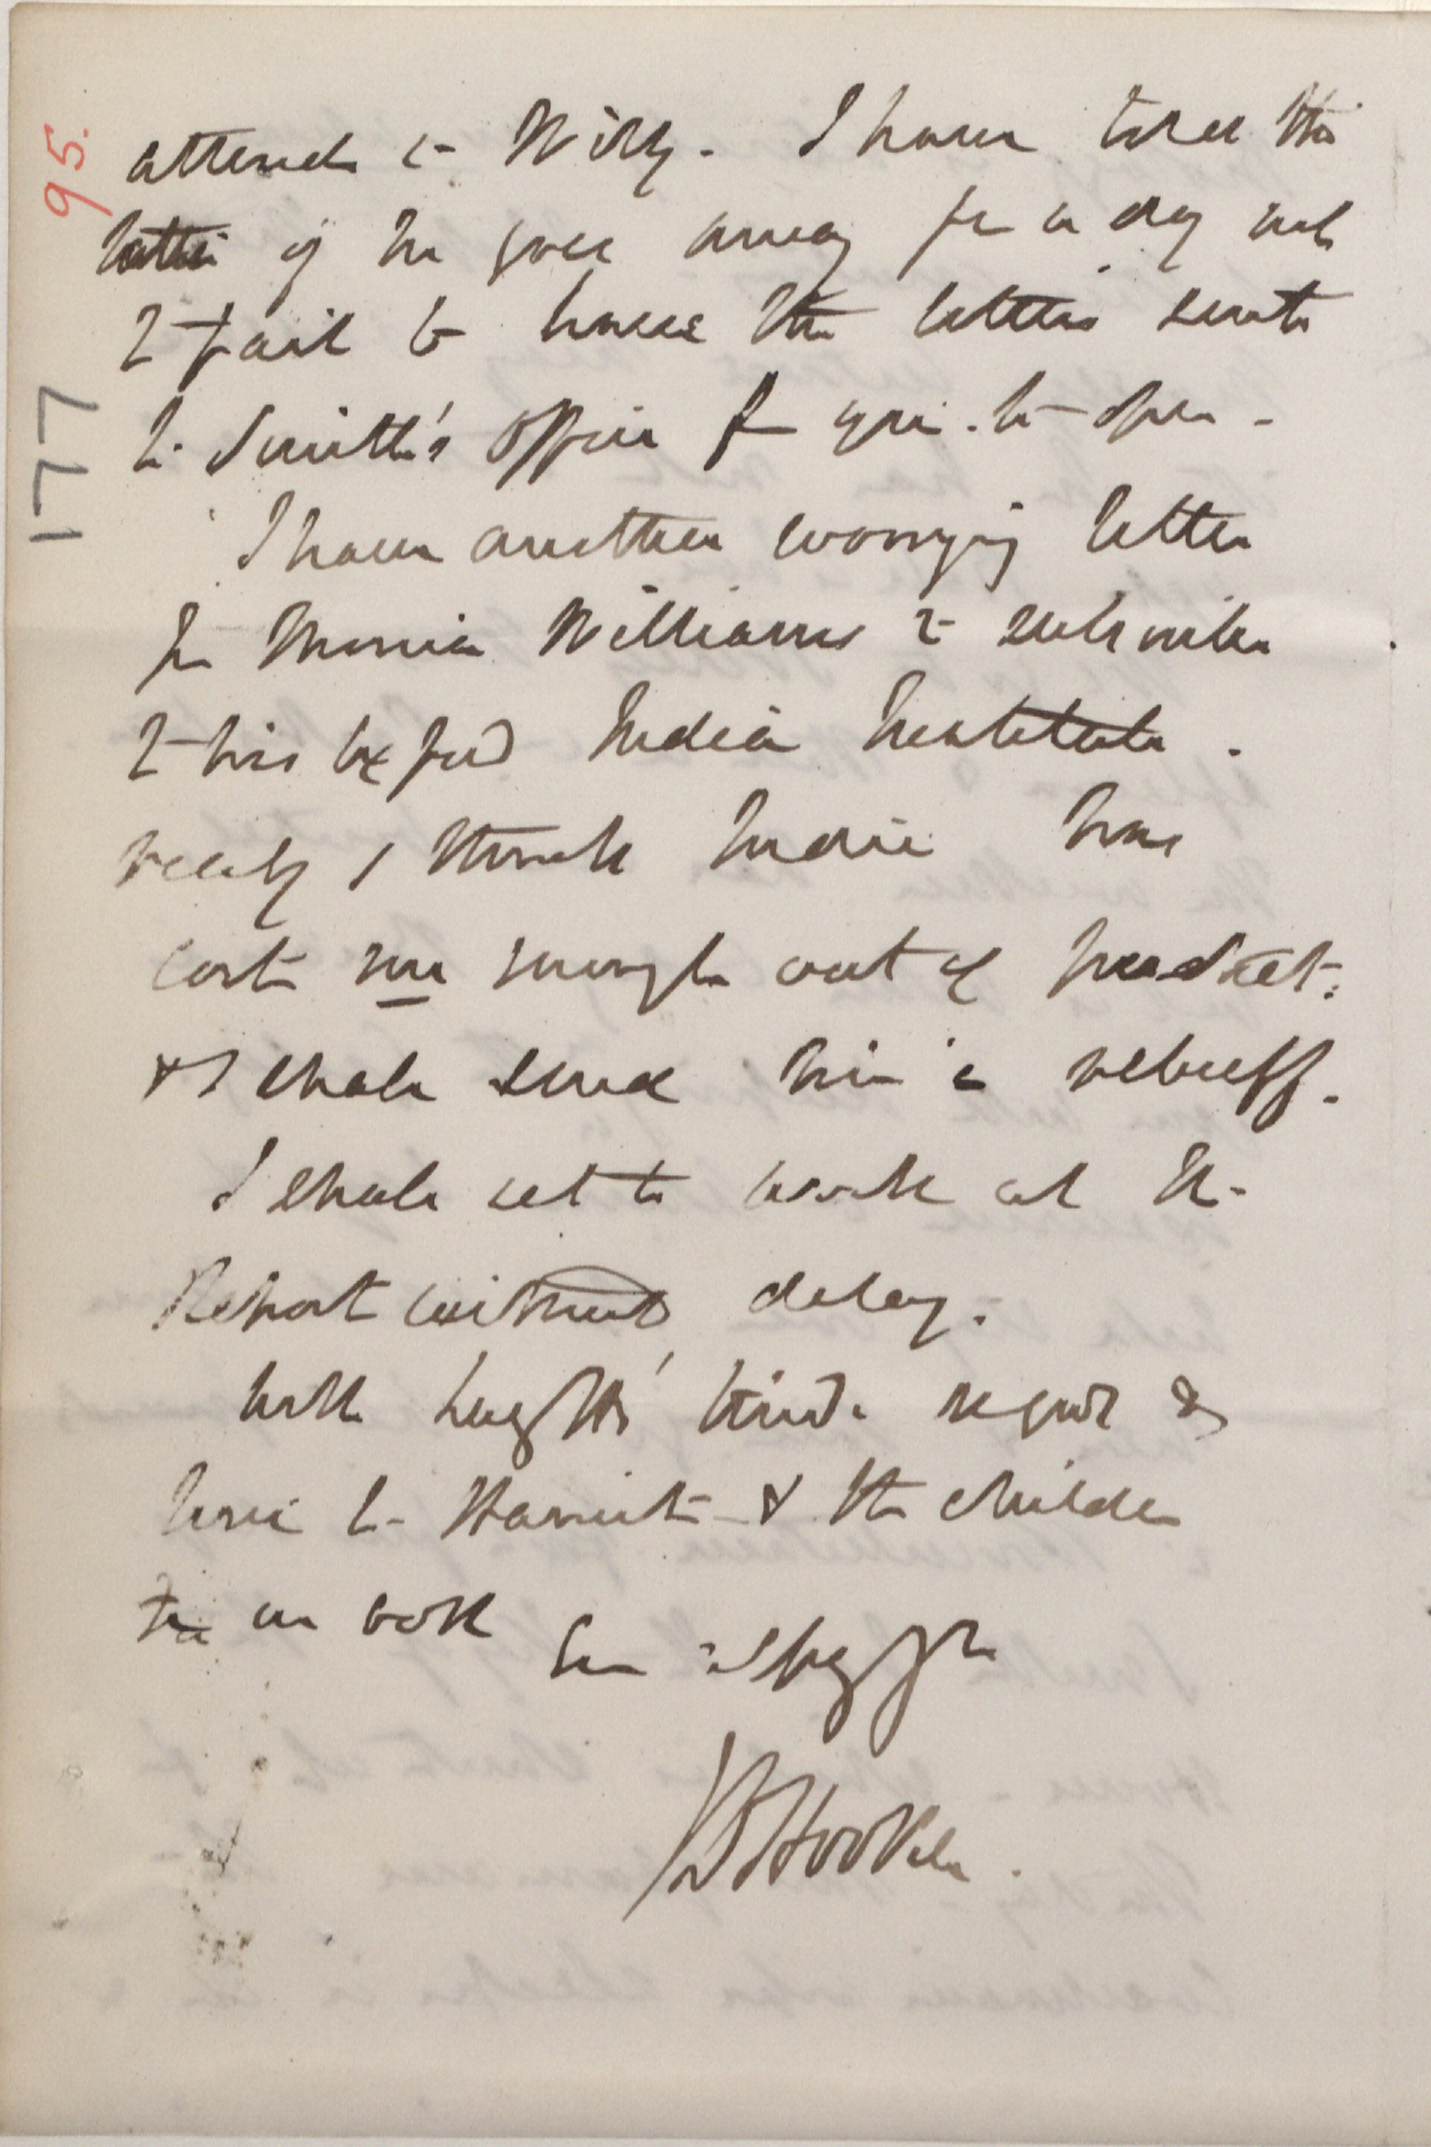 95.
177
attend to Willy. I have told the
latter if he goes away for a day not
to fail to have the letters sent
to Smith's office for you to open -
I have another worrying letter
fm Monier Williams to subscribe
to his Oxford India Institute.
really I think India has
cost me enough out of pocket:
& I shall send him a rebuff.
I shall set to work at the
Report without delay.
With Hyacinth's kind regards &
love to Harriet & the children
fm us both
Ever affy yrs
JD Hooker.